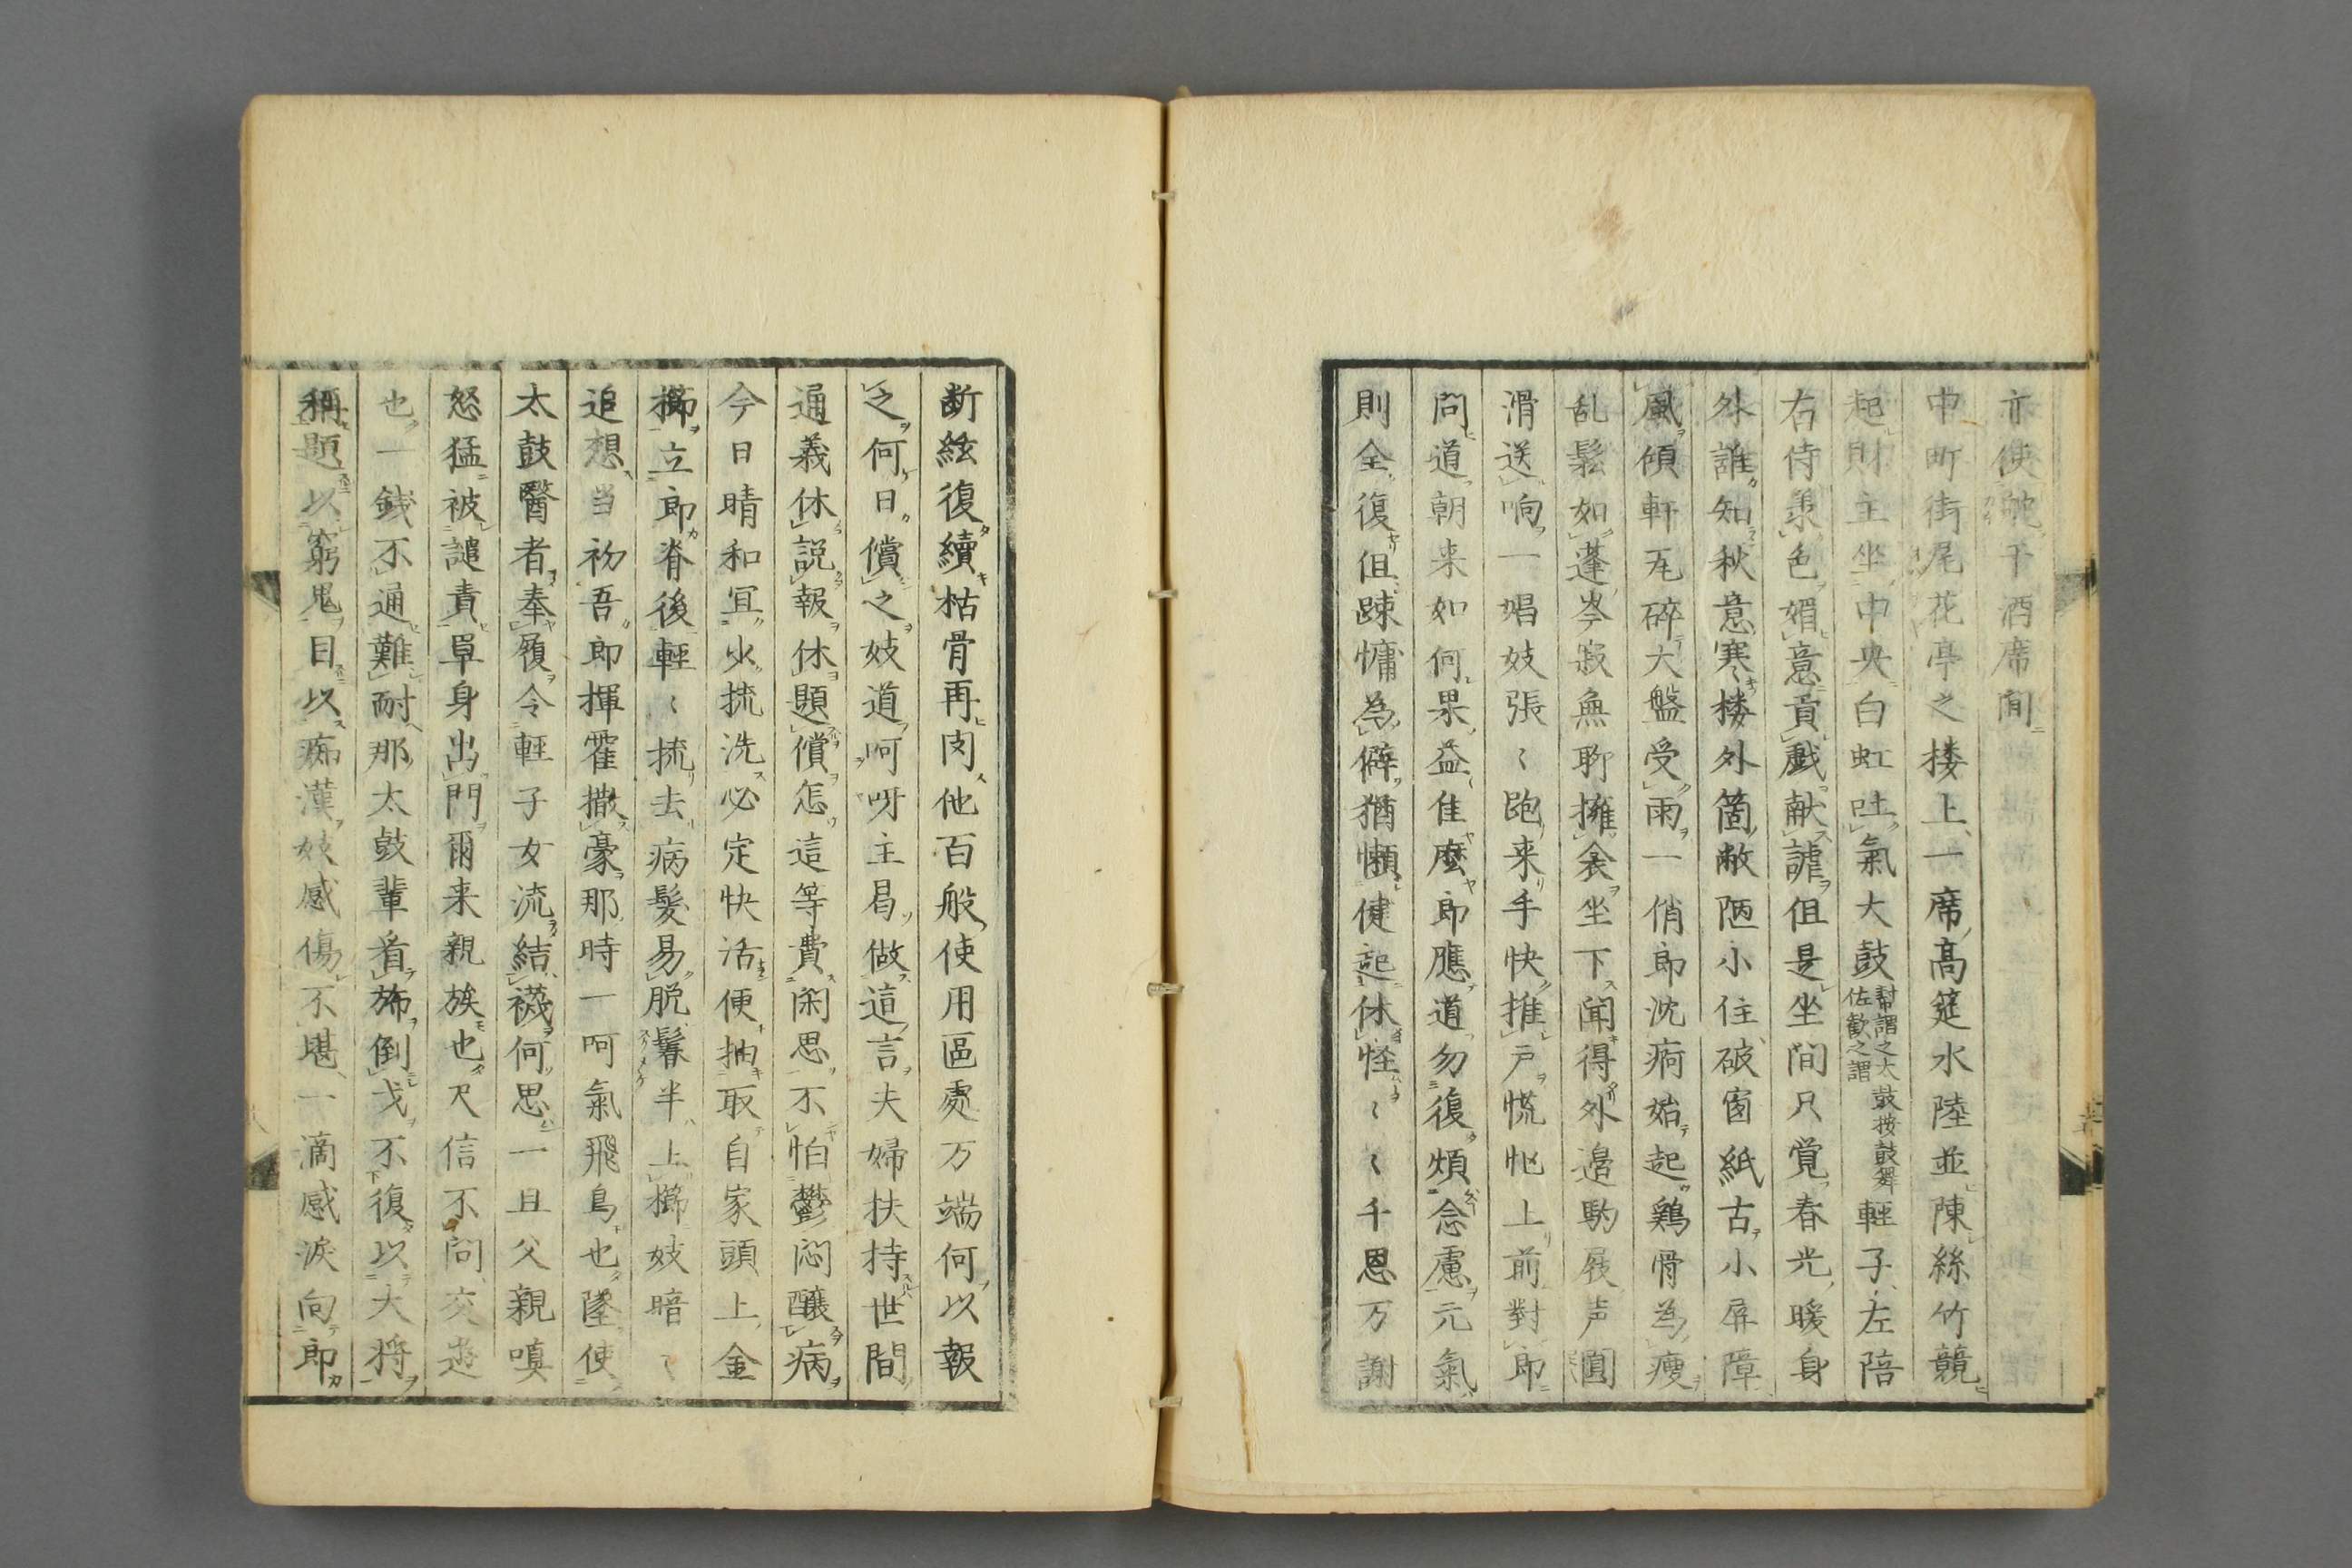 亦使𫠇于酒席間
中町街尾花亭之楼上一席高筵水陸並陳絲竹競
起財主坐中央白虹吐氣大鼓幇謂之大鼓按鼓舞佐歓之謂軽子左陪
右侍羕色媚意貢戯献謔但是坐間只覚春光暖身
外誰知秋意寒楼外箇敝陋小住破窗紙古小屏障
風傾軒瓦碎大盤受雨一俏郎沈痾始起鶏骨為瘦
乱鬆如蓬岑寂無聊擁衾坐下聞得外邉駒屐声圓
滑送响一娼妓張〻跑来手快推戸慌忙上前對郎
問道朝来如何果益佳麼郎應道勿復煩念慮元氣
則全復但踈慵為僻猶懶健起休怪〻〻千恩万謝
断絃復續枯骨再肉他百般使用區處万端何以報
之何日償之妓道呵呀主曷做這言夫婦扶持世間
通義休説報休題償怎這等費閑思不怕鬱悶醸病
今日晴和冝火梳洗必定快活便抽取自家頭上金
擳立郎脊後軽〻梳去病髪易脱鬠半上擳妓暗〻
追想当初吾郎揮霍撒豪那時一呵氣飛鳥也墜使
太鼓醫者奉履令軽子女流結襪何思一旦父親嗔
怒猛被譴責单身出門爾来親族也尺信不問交遊
也一銭不通難耐那太鼓輩看旆倒戈不復以大将
稱題以窮鬼目以痴漢妓感傷不堪一滴感涙向郎